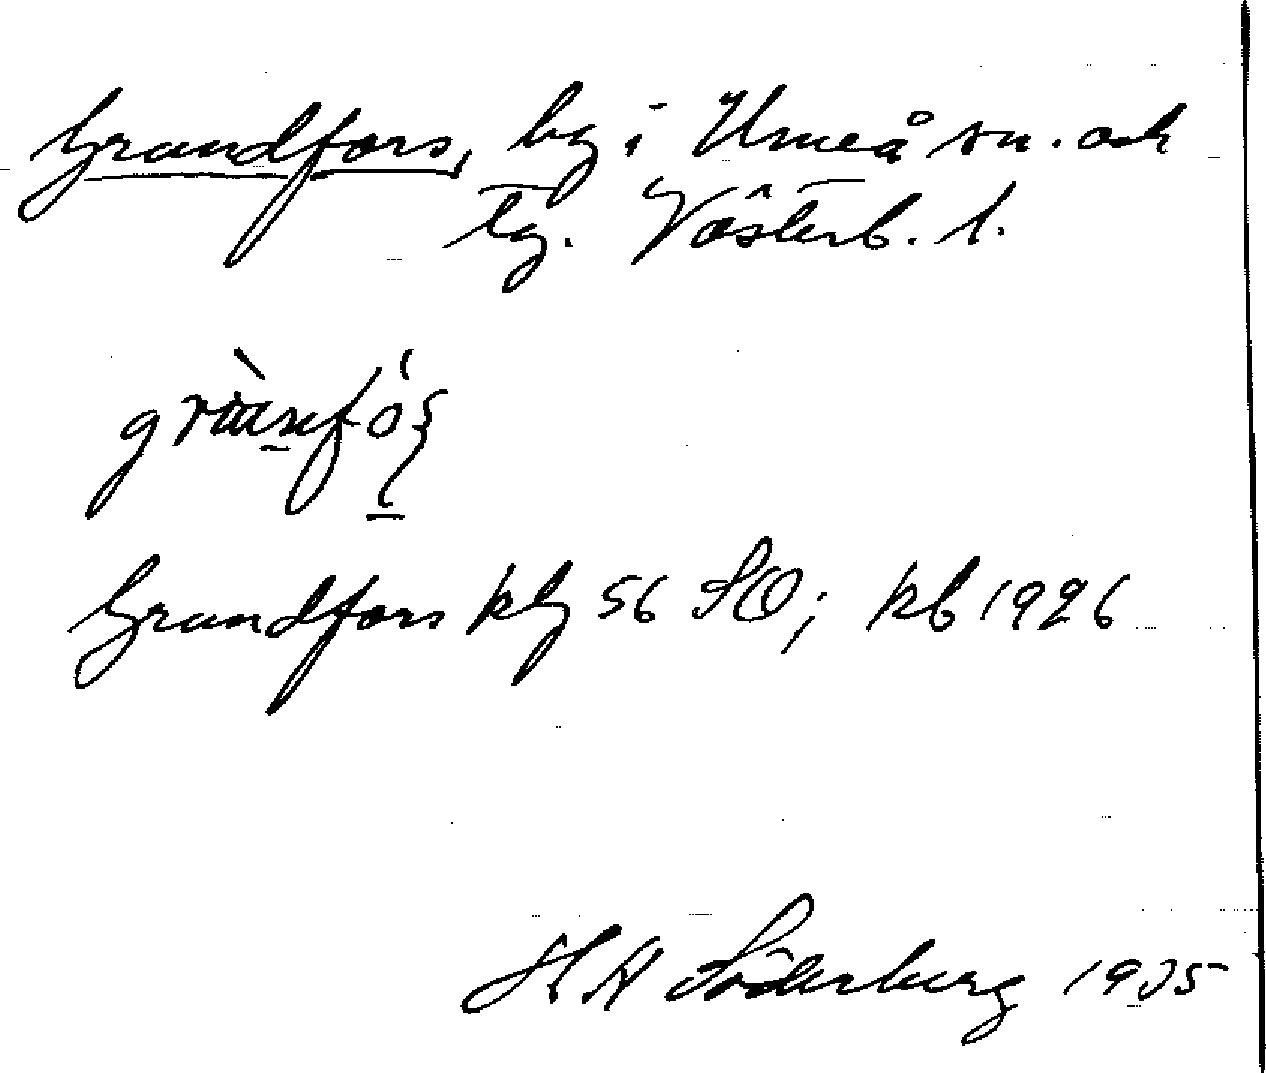 Grandfors, by i Umeå sn. och
tg. Västerb. l.
Grandfors kbl 56 SO; kb 1926
H A Söderberg 1935